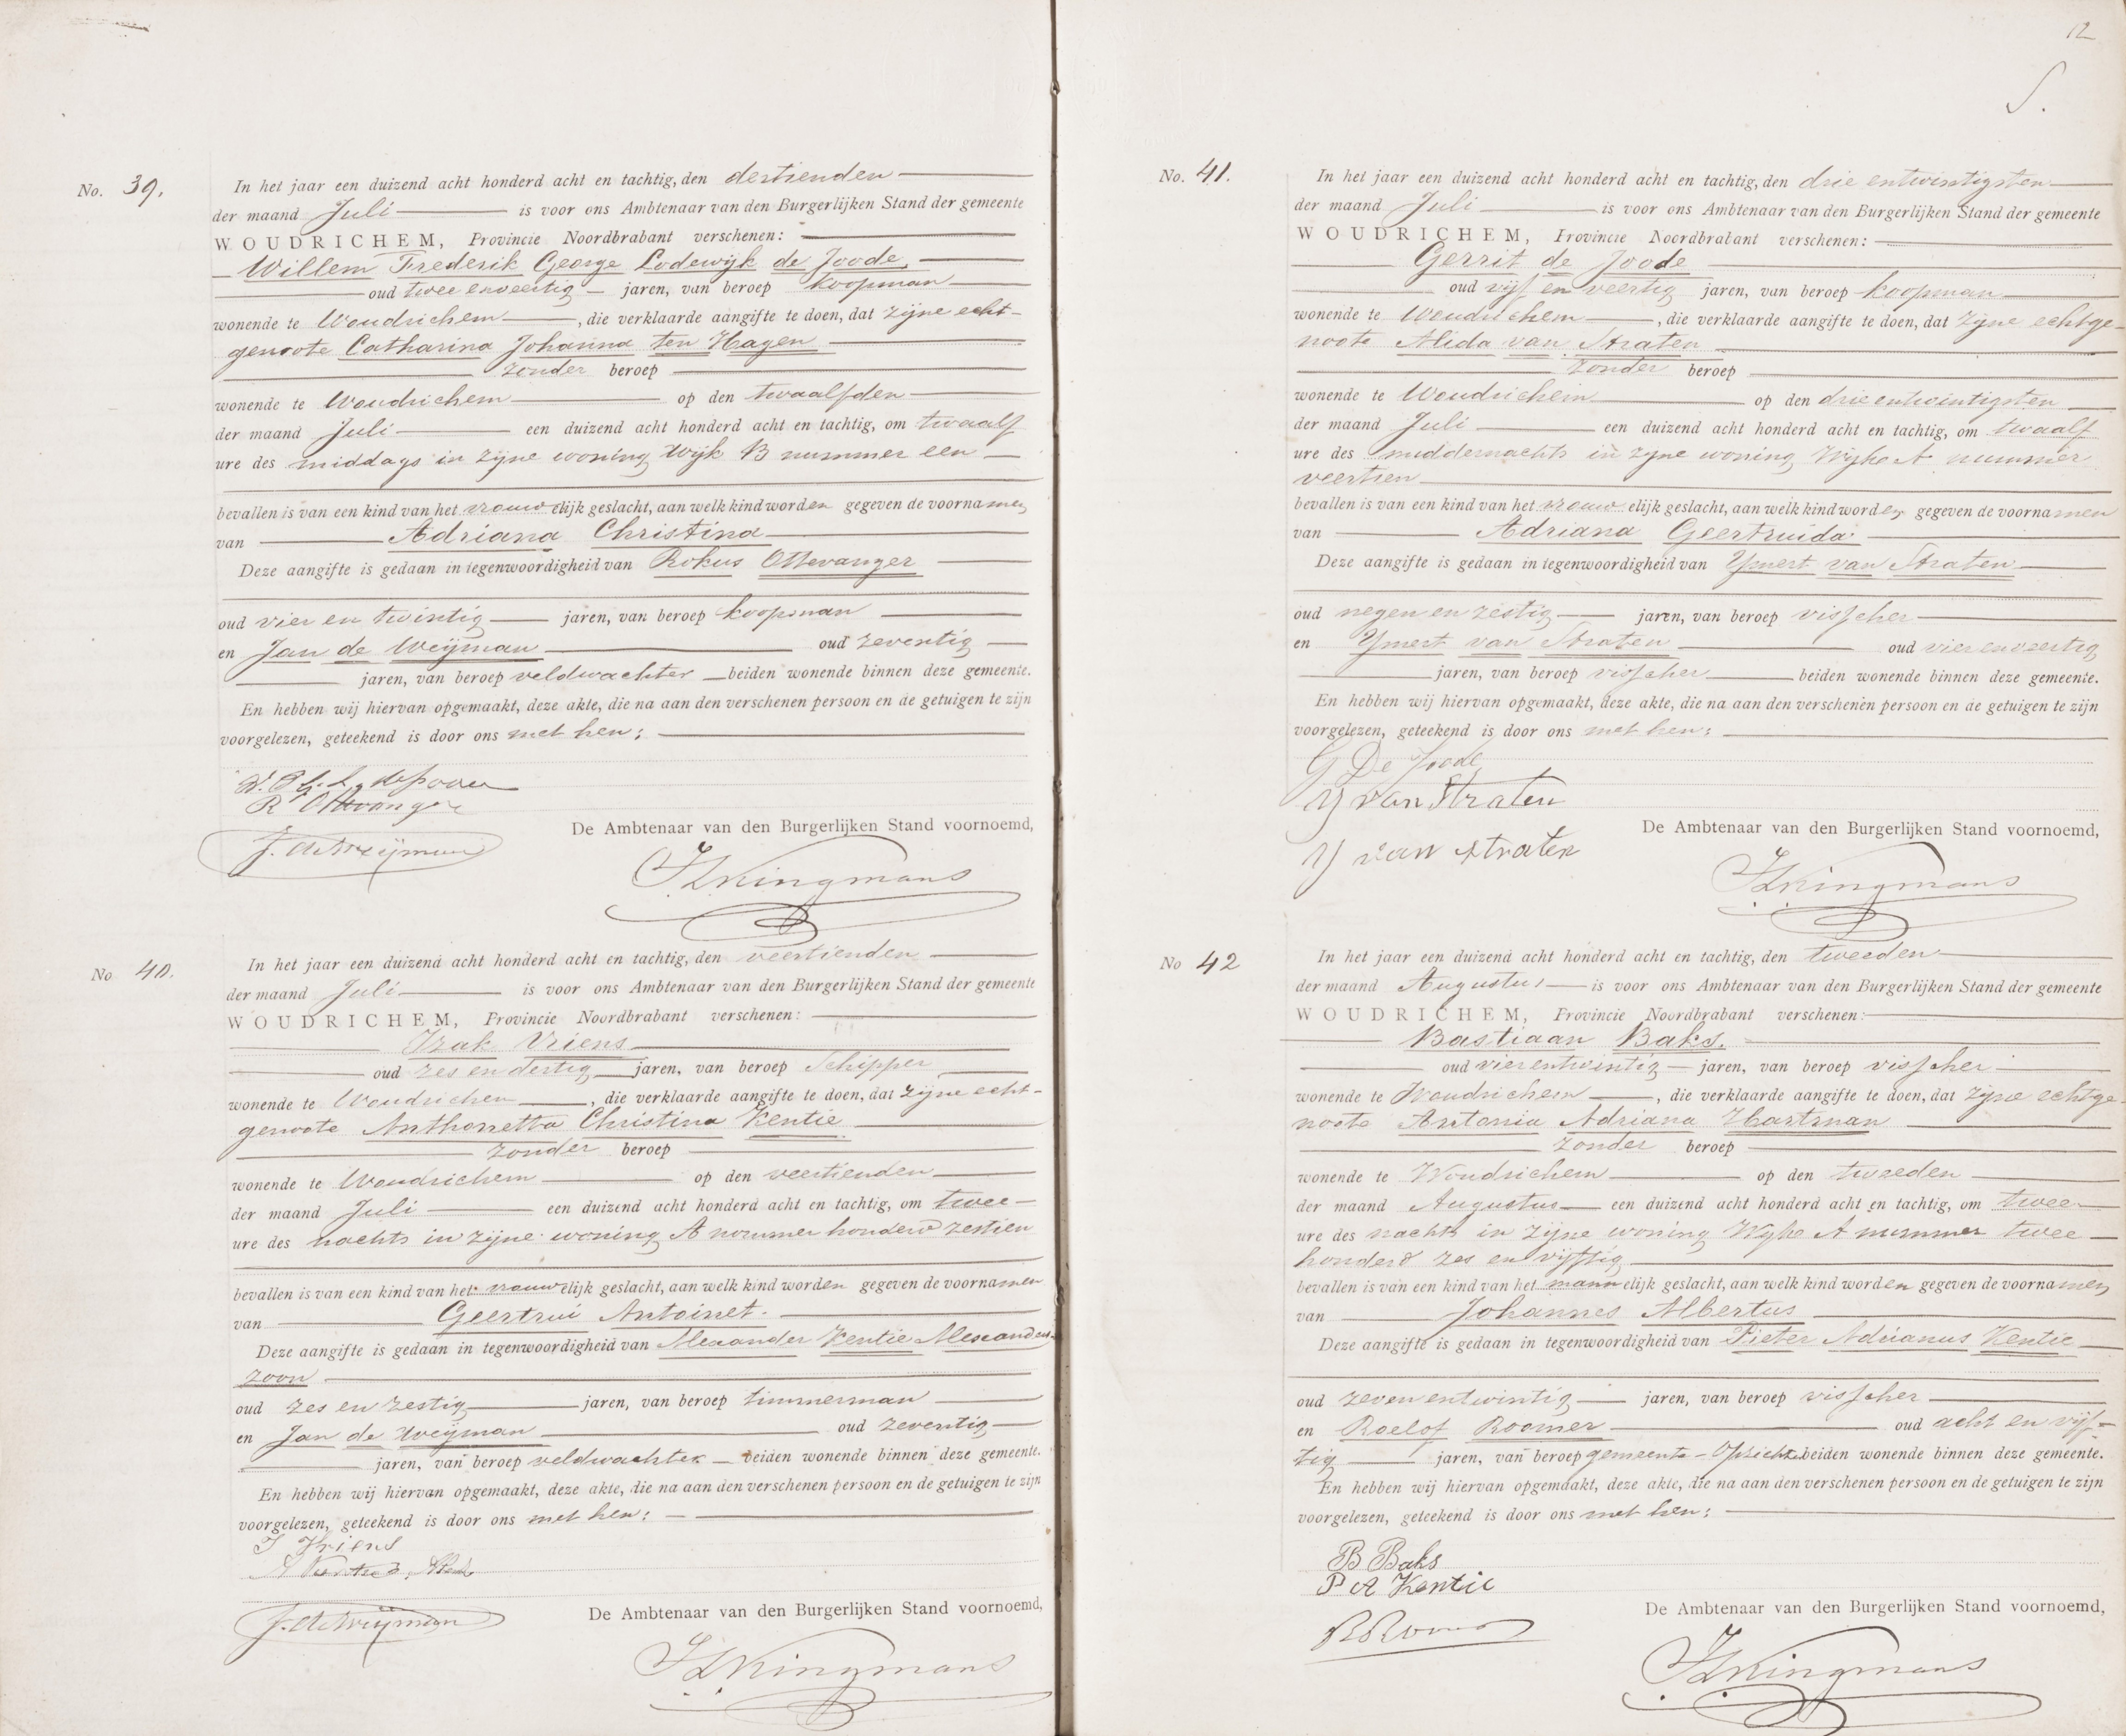 No. 39.
In het jaar een duizend acht honderd acht en tachtig, den dertienden
der maand Juli is voor ons Ambtenaar van den Burgerlijken Stand der gemeente
WOUDRICHEM, Provincie Noordbrabant verschenen:
Willem Frederik George Lodewijk de Joode,
oud twee en veertig jaren, van beroep koopman
wonende te Woudrichem, die verklaarde aangifte te doen, dat zijne echt-
genoote Catharina Johanna ten Hagen
zonder beroep
wonende te Woudrichem op den twaalfden
der maand Juli een duizend acht honderd acht en tachtig, om twaalf
ure des middags in zijne woning Wijk B nummer een
bevallen is van een kind van het vrouwelijk geslacht, aan welk kind worden gegeven de voornamen
van Adriana Christina
Deze aangifte is gedaan in tegenwoordigheid van Rokus Ottevanger
oud vier en twintig jaren, van beroep koopman
en Jan de Weijman oud zeventig
jaren, van beroep veldwachter beiden wonende binnen deze gemeente.
En hebben wij hiervan opgemaakt, deze akte, die na aan den verschenen persoon en de getuigen te zijn
voorgelezen, geteekend is door ons met hen:
R Ottevanger
De Ambtenaar van den Burgerlijken Stand voornoemd,
J. de Weijman
Kingmans
No 40.
In het jaar een duizend acht honderd acht en tachtig, den veertienden
der maand Juli is voor ons Ambtenaar van den Burgerlijken Stand der gemeente
WOUDRICHEM, Provincie Noordbrabant verschenen:
Izak Vriens
oud zes en dertig jaren, van beroep Schipper
wonende te Woudrichem, die verklaarde aangifte te doen, dat zijne echt-
genoote Anthonetta Christina Kentie
zonder beroep
wonende te Woudrichem op den veertienden
der maand Juli een duizend acht honderd acht en tachtig, om twee
ure des nachts in zijne woning A nommer honderd zestien
bevallen is van een kind van het vrouwelijk geslacht, aan welk kind worden gegeven de voornamen
van Geertrui Antoinet.
Deze aangifte is gedaan in tegenwoordigheid van Alexander Kentie Alexanders-
zoon
oud zes en zestig jaren, van beroep timmerman
en Jan de Weijman oud zeventig
jaren, van beroep veldwachter beiden wonende binnen deze gemeente.
En hebben wij hiervan opgemaakt, deze akte, die na aan den verschenen persoon en de getuigen te zijn
voorgelezen, geteekend is door ons met hen:
I Vriens
A Kentie
De Ambtenaar van den Burgerlijken Stand voornoemd,
J. de Weijman
Kingmans
12
S.
No. 41.
In het jaar een duizend acht honderd acht en tachtig, den drie entwintigsten
der maand Juli is voor ons Ambtenaar van den Burgerlijken Stand der gemeente
WOUDRICHEM, Provincie Noordbrabant verschenen:
Gerrit de Joode
oud vijf en veertig jaren, van beroep koopman
wonende te Woudrichem, die verklaarde aangifte te doen, dat zijne echtge-
noote Alida van Straten
zonder beroep
wonende te Woudrichem op den drie entwintigsten
der maand Juli een duizend acht honderd acht en tachtig, om twaalf
ure des middernachts in zijne woning Wijk A nummer
veertien
bevallen is van een kind van het vrouwelijk geslacht, aan welk kind worden gegeven de voornamen
van Adriana Geertruida
Deze aangifte is gedaan in tegenwoordigheid van Ymert van Straten
oud negen en zestig jaren, van beroep visscher
en Ymert van Straten oud vier en veertig
jaren, van beroep visscher beiden wonende binnen deze gemeente.
En hebben wij hiervan opgemaakt, deze akte, die na aan den verschenen persoon en de getuigen te zijn
voorgelezen, geteekend is door ons met hen:
G De Joode
Y van Straten
De Ambtenaar van den Burgerlijken Stand voornoemd,
Y van Straten
Kingmans
No 42
In het jaar een duizend acht honderd acht en tachtig, den tweeden
der maand Augustus is voor ons Ambtenaar van den Burgerlijken Stand der gemeente
WOUDRICHEM, Provincie Noordbrabant verschenen:
Bastiaan Baks.
oud vier entwintig jaren, van beroep visscher
wonende te Woudrichem, die verklaarde aangifte te doen, dat zijne echtge-
noote Antonia Adriana Hartman
zonder beroep
wonende te Woudrichem op den tweeden
der maand Augustus een duizend acht honderd acht en tachtig, om twee
ure des nachts in zijne woning Wijk A nummer twee
honderd zes en vijftig
bevallen is van een kind van het mannelijk geslacht, aan welk kind worden gegeven de voornamen
van Johannes Albertus
Deze aangifte is gedaan in tegenwoordigheid van Pieter Adrianus Kentie
oud zeven entwintig jaren, van beroep visscher
en Roelof Roomer oud acht en vijf-
tig jaren, van beroep gemeente-Opzichter beiden wonende binnen deze gemeente.
En hebben wij hiervan opgemaakt, deze akte, die na aan den verschenen persoon en de getuigen te zijn
voorgelezen, geteekend is door ons met hen:
B Baks
P A Kentie
De Ambtenaar van den Burgerlijken Stand voornoemd,
R Roomer
Kingmans